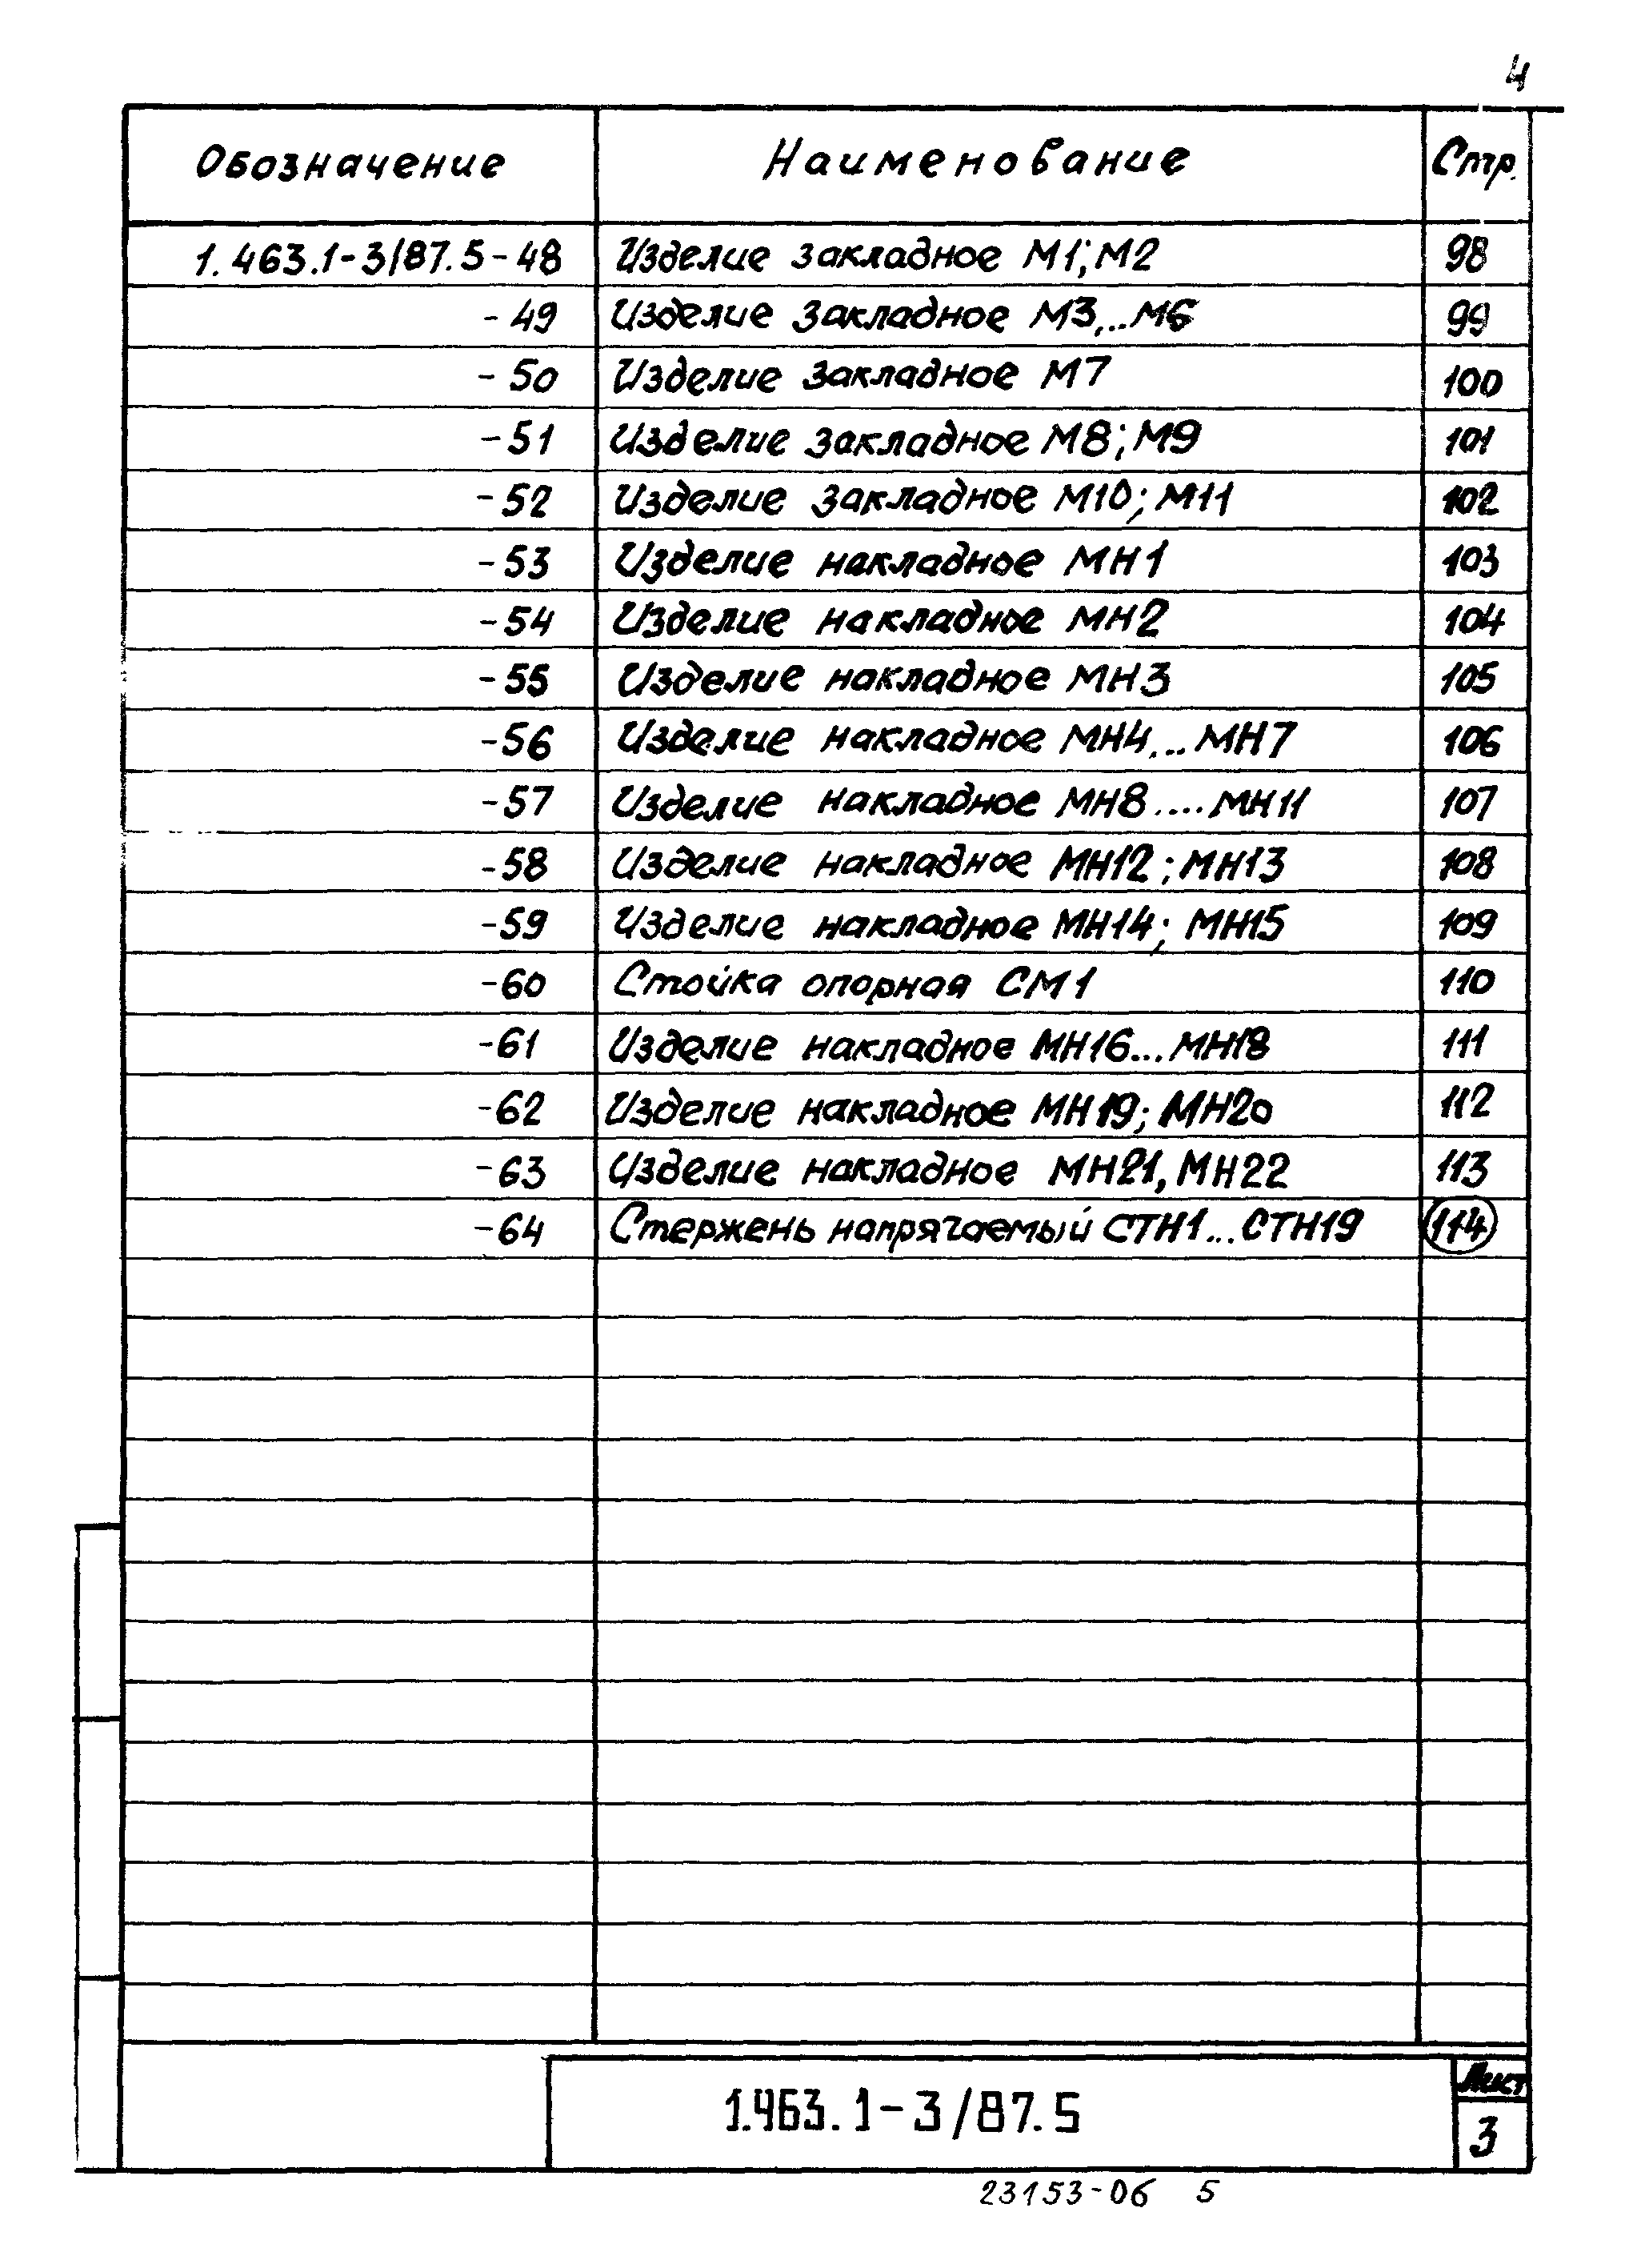 4
Обозначение Наименование Стр.
1.463.1-3/87.5-48 Изделие закладное М1; М2 98
-49 Изделие закладное М3,..М6 99
-50 Изделие закладное М7 100
-51 Изделие закладное М8; М9 101
-52 Изделие закладное М10; М11 102
-53 Изделие накладное МН1 103
-54 Изделие накладное МН2 104
-55 Изделие накладное МН3 105
-56 Изделие накладное МН4...МН7 106
-57 Изделие накладное МН8....МН11 107
-58 Изделие накладное МН12; МН13 108
-59 Изделие накладное МН14; МН15 109
-60 Стойка опорная СМ1 110
-61 Изделие накладное МН16...МН18 111
-62 Изделие накладное МН19; МН20 112
-63 Изделие накладное МН21, МН22 113
-64 Стержень напрягаемый СТН1...СТН19 114
1.463.1-3/87.5
Лист
3
23153-06 5